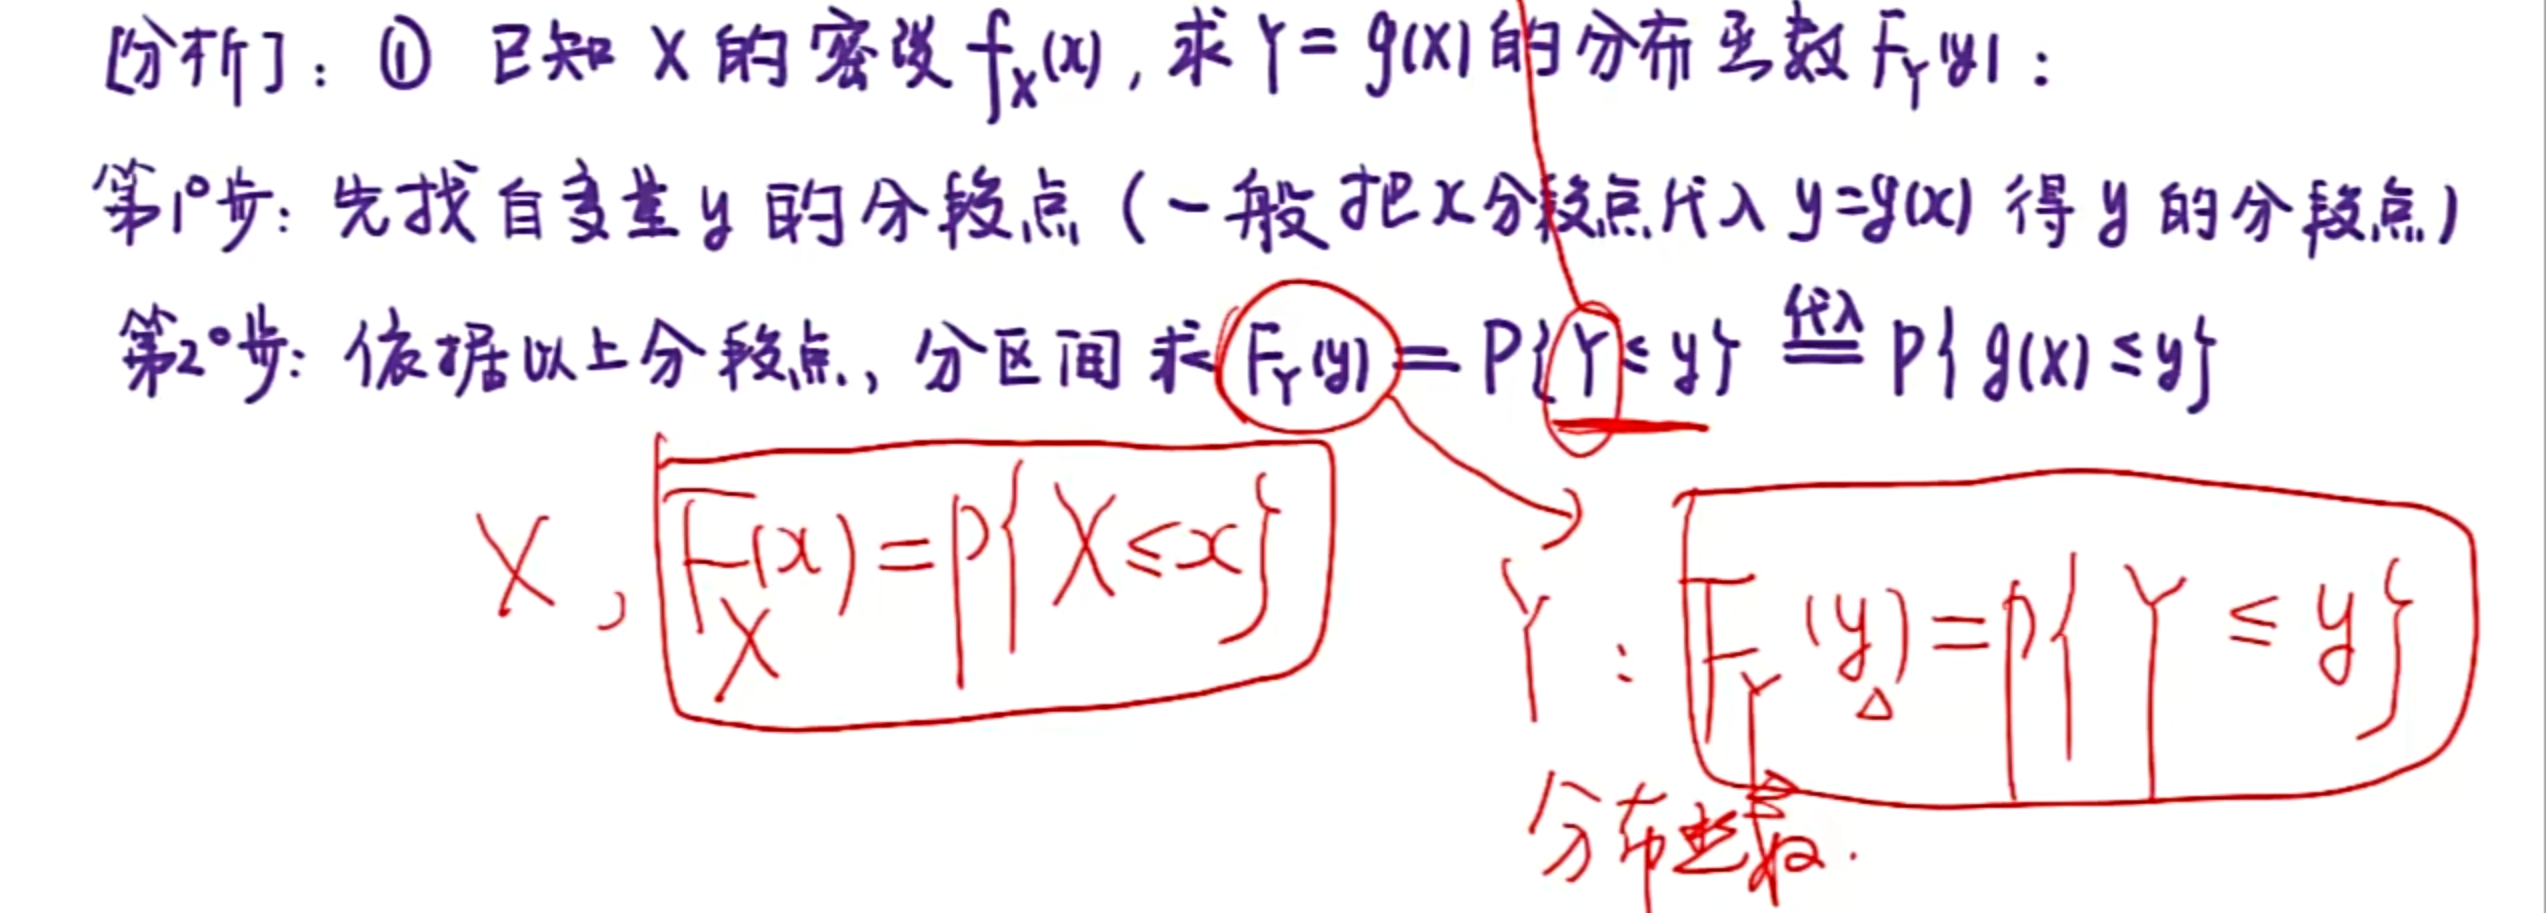 [分析]：① 已知 X 的密度 f_X(x)，求 Y = g(X) 的分布函数 F_Y(y)：
第1°步：先找自变量 y 的分段点（一般把 x 分段点代入 y=g(x) 得 y 的分段点）
第2°步：依据以上分段点，分区间求 F_Y(y) = P{Y ≤ y} 代入 = P{g(X) ≤ y}
X， F_X(x) = P{X ≤ x}
Y： F_Y(y) = P{Y ≤ y}
分布函数.